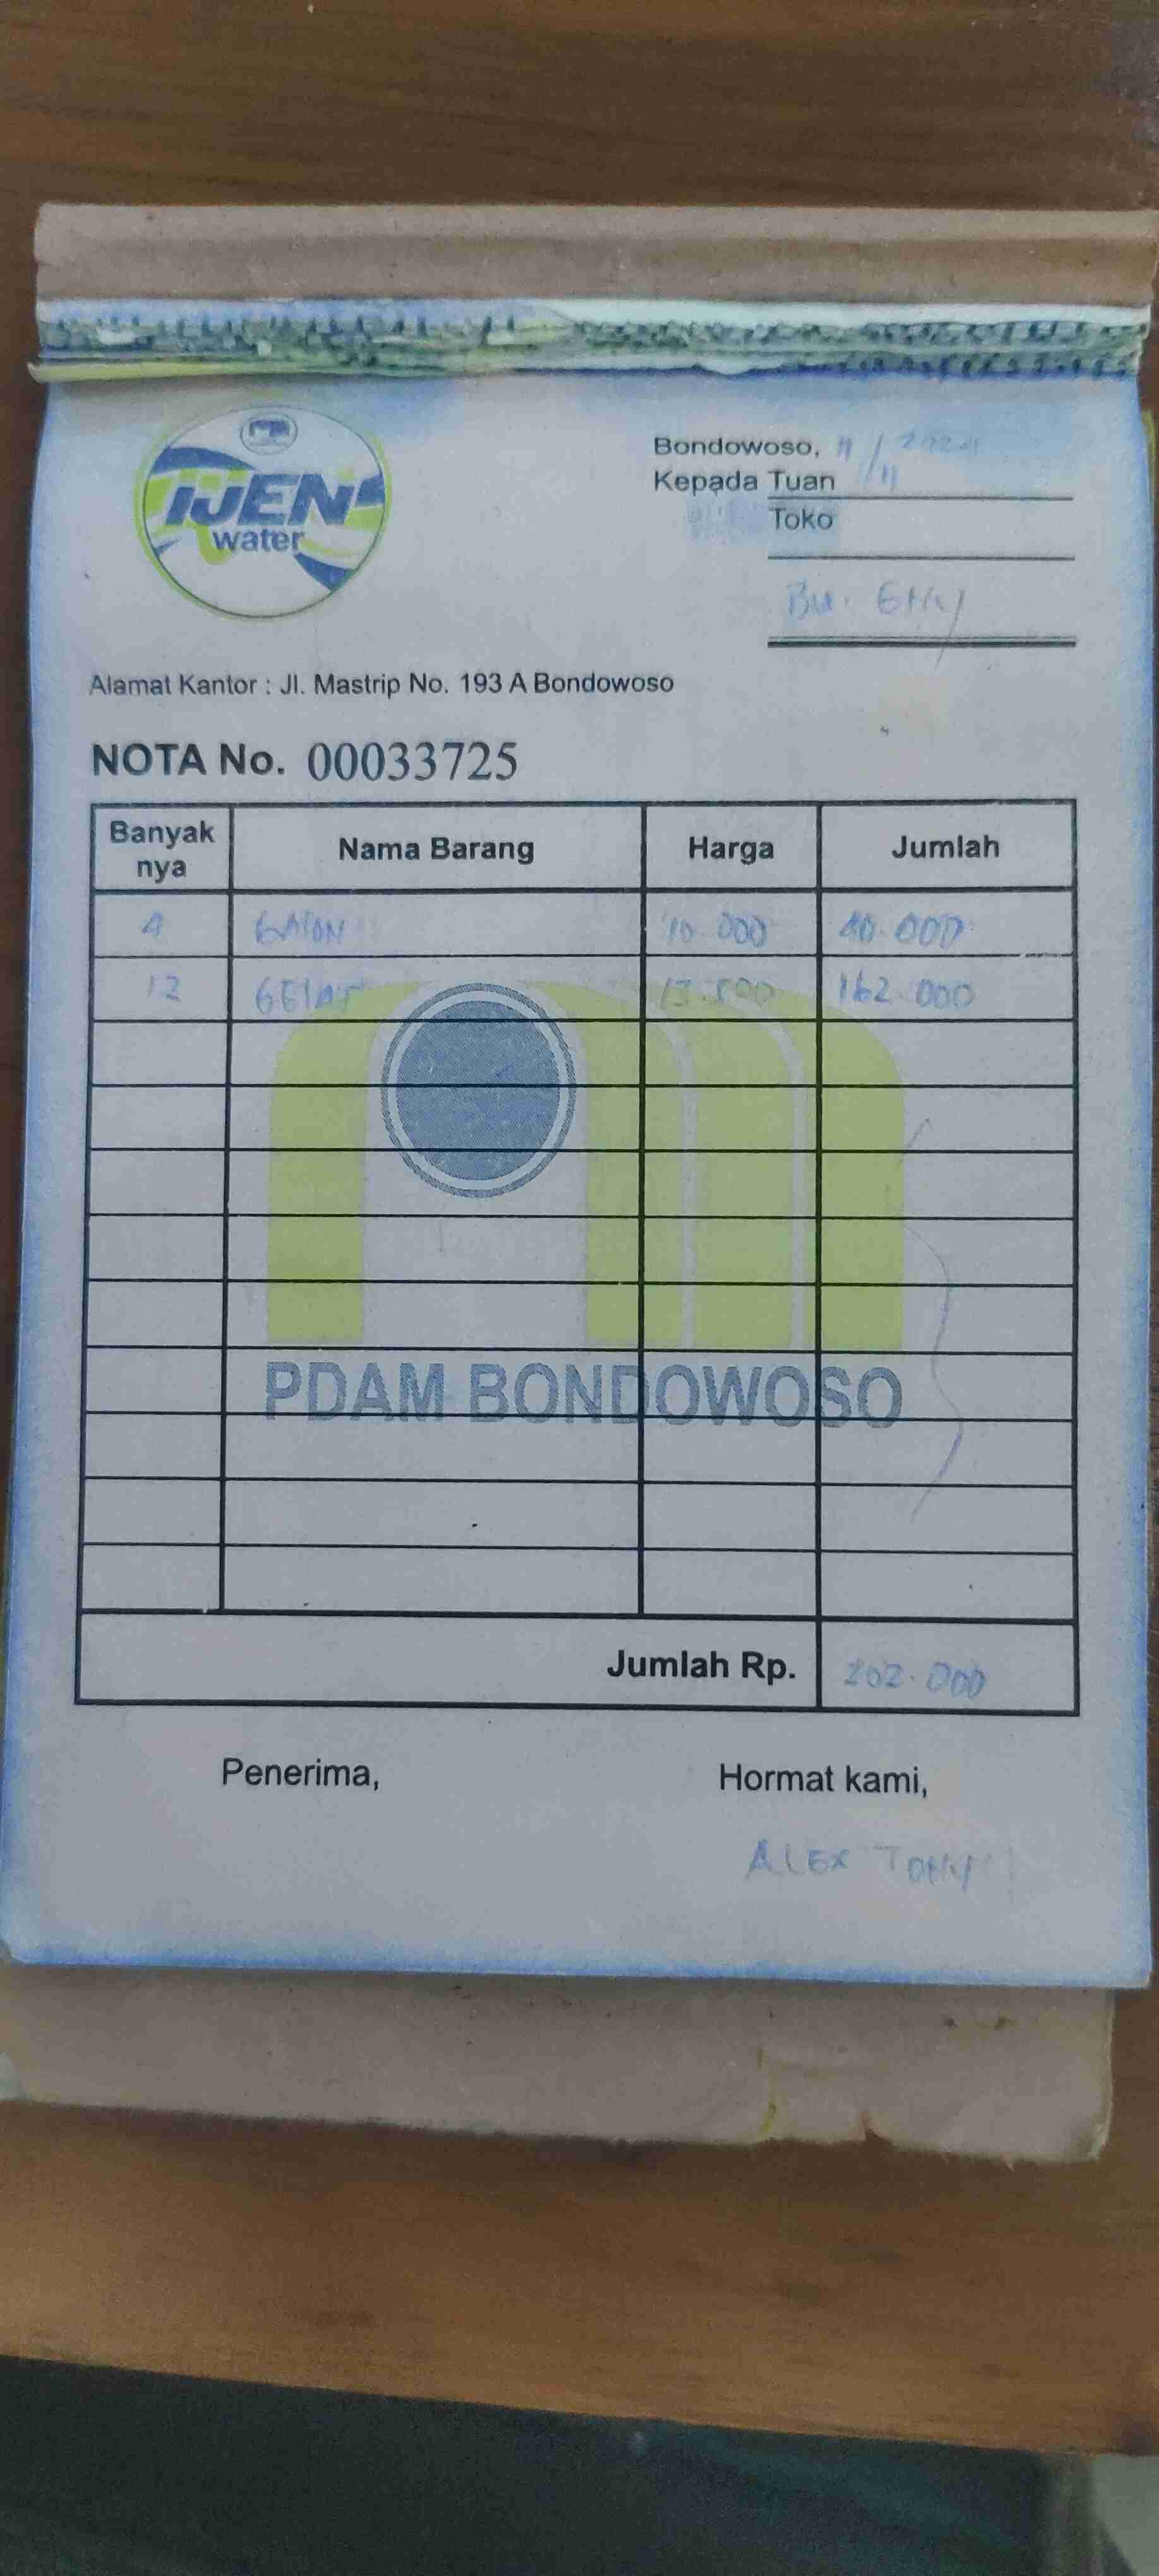 IJEN
water
Bondowoso, 11/11 2024
Kepada Tuan
Toko
Bu. Eny
Alamat Kantor : Jl. Mastrip No. 193 A Bondowoso
NOTA No. 00033725
Banyak nya Nama Barang Harga Jumlah
4 GALON 10.000 40.000
12 GELAS 13.500 162.000
PDAM BONDOWOSO
Jumlah Rp. 202.000
Penerima, Hormat kami,
ALEX TONY